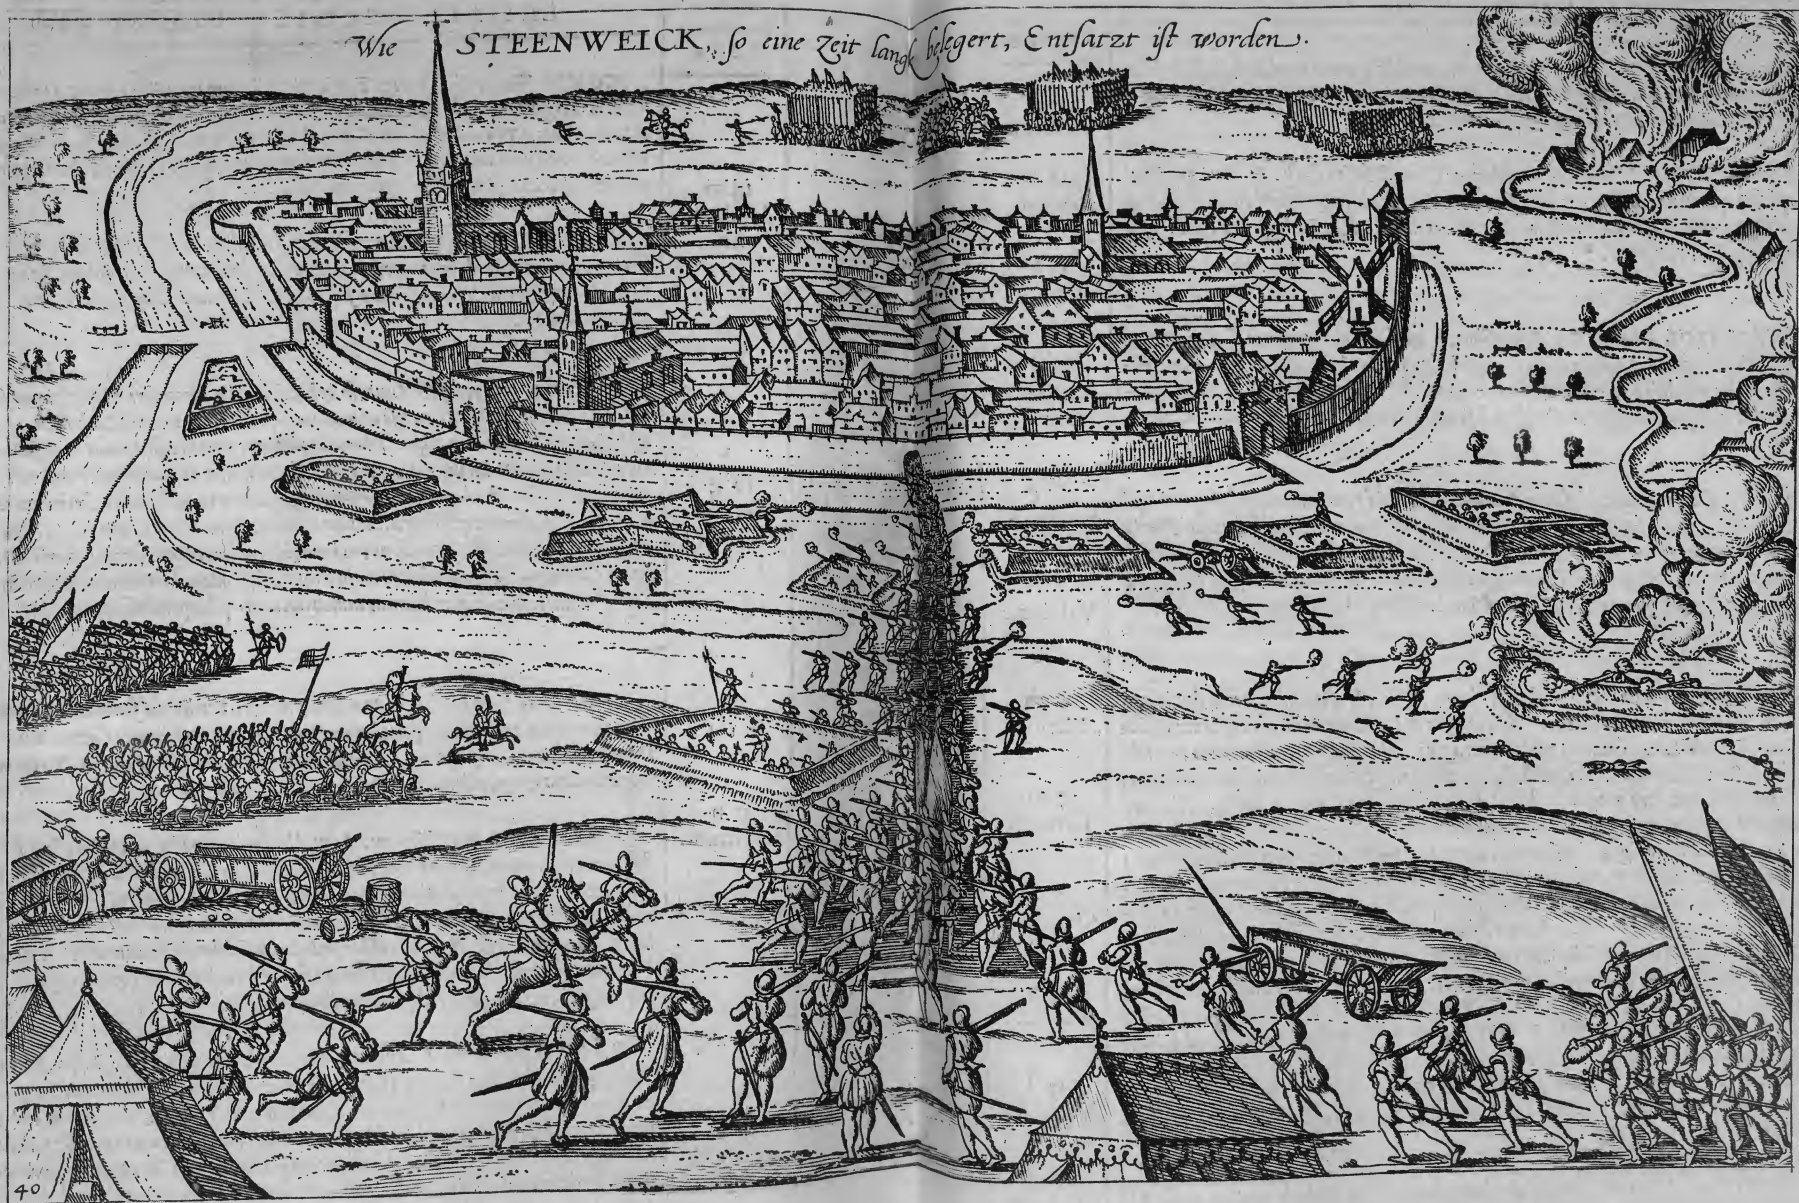 Wie STEENWEICK, so eine Zeit langk belegert, Entsatzt ist worden.
40